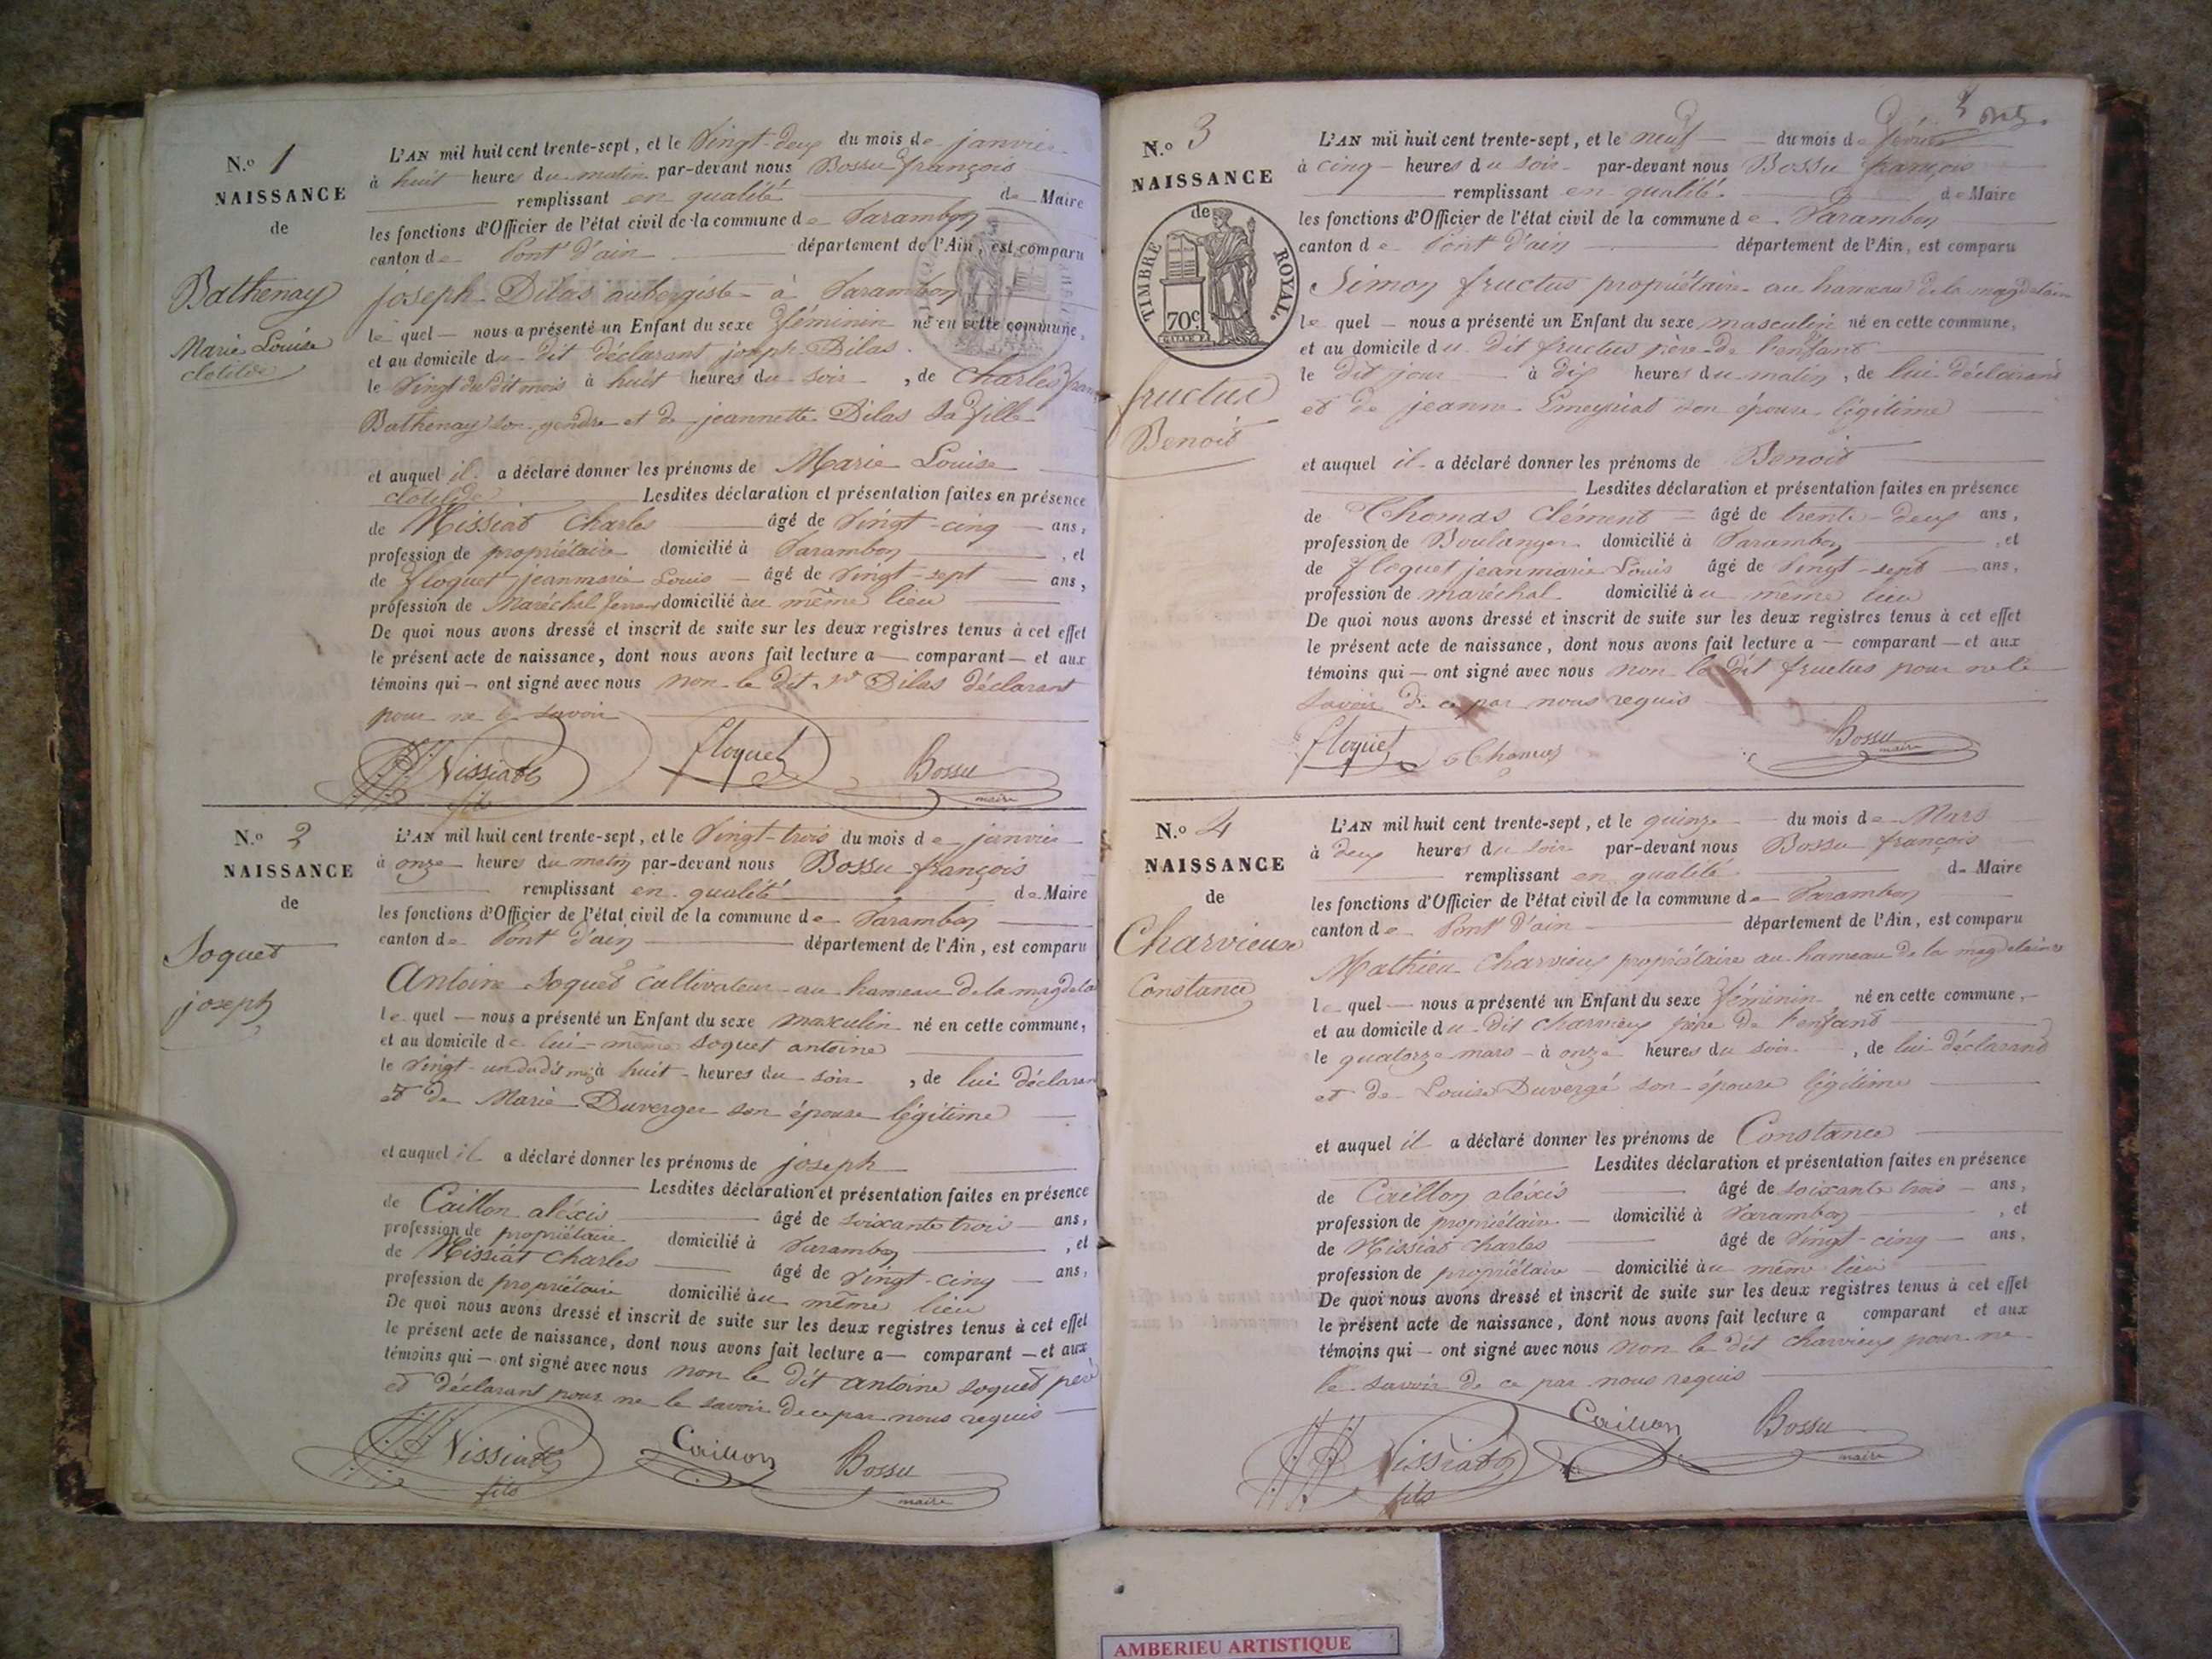 N.o 1
NAISSANCE
de
Bathenay
Marie Louise
clotilde
L'AN mil huit cent trente-sept, et le Vingt-deux du mois de janvier
à huit heures du matin par-devant nous Bossu françois
remplissant en qualité de Maire
les fonctions d'Officier de l'état civil de la commune de Varambon
canton de Pont d'ain département de l'Ain, est comparu
joseph Dilas aubergiste à Varambon
le quel nous a présenté un Enfant du sexe féminin né en cette commune,
et au domicile du dit déclarant joseph Dilas
le Vingt du dit mois à huit heures du soir, de Charles
Bathenay son gendre et de jeannette Dilas sa fille
et auquel il a déclaré donner les prénoms de Marie Louise
clotilde Lesdites déclaration et présentation faites en présence
de Nissiat Charles âgé de Vingt-cinq ans,
profession de propriétaire domicilié à Varambon, et
de floquet jeanmarie Louis âgé de Vingt-sept ans,
profession de Maréchal ferran domicilié au même lieu
De quoi nous avons dressé et inscrit de suite sur les deux registres tenus à cet effet
le présent acte de naissance, dont nous avons fait lecture a comparant et aux
témoins qui ont signé avec nous non le dit Dilas déclarant
pour ne le savoir
Nissiat fils floquet Bossu maire
N.o 2
NAISSANCE
de
Soquet
joseph
L'AN mil huit cent trente-sept, et le Vingt-trois du mois de janvier
à onze heures du matin par-devant nous Bossu françois
remplissant en qualité de Maire
les fonctions d'Officier de l'état civil de la commune de Varambon
canton de Pont d'ain département de l'Ain, est comparu
Antoine Soquet Cultivateur au hameau de la magdela
le quel nous a présenté un Enfant du sexe masculin né en cette commune,
et au domicile de lui-même soquet antoine
le Vingt-un du dit mois à huit heures du soir, de lui déclaran
et de Marie Duverger son épouse légitime
et auquel il a déclaré donner les prénoms de joseph
Lesdites déclaration et présentation faites en présence
de Caillon aléxis âgé de soixante trois ans,
profession de propriétaire domicilié à Varambon, et
de Nissiat Charles âgé de Vingt-cinq ans,
profession de propriétaire domicilié au même lieu
De quoi nous avons dressé et inscrit de suite sur les deux registres tenus à cet effet
le présent acte de naissance, dont nous avons fait lecture a comparant et aux
témoins qui ont signé avec nous non le dit antoine soquet pere
et déclarant pour ne le savoir de ce par nous requis
Nissiat fils Caillon Bossu maire
N.o 3
NAISSANCE
de
TIMBRE ROYAL.
70c
fructus
Benoit
L'AN mil huit cent trente-sept, et le neuf du mois de février
à cinq heures du soir par-devant nous Bossu françois
remplissant en qualité de Maire
les fonctions d'Officier de l'état civil de la commune de Varambon
canton de Pont d'ain département de l'Ain, est comparu
Simon fructus propriétaire au hameau de la magdelaine
le quel nous a présenté un Enfant du sexe masculin né en cette commune,
et au domicile du dit fructus père de l'enfant
le dit jour à dix heures du matin, de lui déclarant
et de jeanne Emeyriat son épouse légitime
et auquel il a déclaré donner les prénoms de Benoit
Lesdites déclaration et présentation faites en présence
de Thomas Clément âgé de trente-deux ans,
profession de Boulanger domicilié à Varambon, et
de floquet jeanmarie Louis âgé de Vingt-sept ans,
profession de maréchal domicilié au même lieu
De quoi nous avons dressé et inscrit de suite sur les deux registres tenus à cet effet
le présent acte de naissance, dont nous avons fait lecture a comparant et aux
témoins qui ont signé avec nous non le dit fructus pour ne le
savoir de ce par nous requis
floquet Thomas Bossu maire
N.o 4
NAISSANCE
de
Charvieux
Constance
L'AN mil huit cent trente-sept, et le quinze du mois de Mars
à deux heures du soir par-devant nous Bossu françois
remplissant en qualité de Maire
les fonctions d'Officier de l'état civil de la commune de Varambon
canton de Pont d'ain département de l'Ain, est comparu
Mathieu Charvieux propriétaire au hameau de la magdelaine
le quel nous a présenté un Enfant du sexe féminin né en cette commune,
et au domicile du dit charvieux père de l'enfant
le quatorze mars à onze heures du soir, de lui déclarant
et de Louise Duvergé son épouse légitime
et auquel il a déclaré donner les prénoms de Constance
Lesdites déclaration et présentation faites en présence
de Caillon aléxis âgé de soixante trois ans,
profession de propriétaire domicilié à Varambon, et
de Nissiat charles âgé de Vingt-cinq ans,
profession de propriétaire domicilié au même lieu
De quoi nous avons dressé et inscrit de suite sur les deux registres tenus à cet effet
le présent acte de naissance, dont nous avons fait lecture a comparant et aux
témoins qui ont signé avec nous non le dit charvieux pour ne
le savoir de ce par nous requis
Nissiat fils Caillon Bossu maire
AMBERIEU ARTISTIQUE